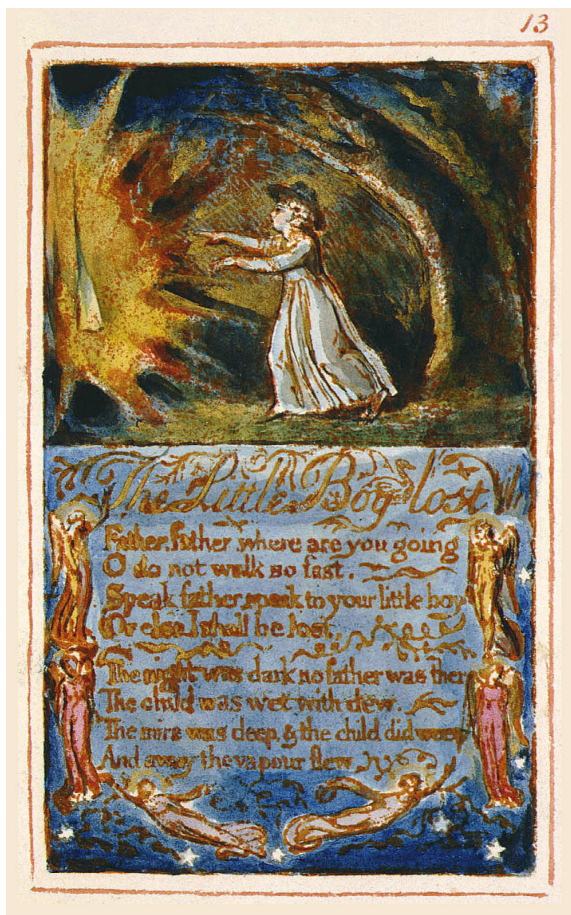 13
The Little Boy lost
Father, father, where are you going
O do not walk so fast.
Speak father, speak to your little boy
Or else I shall be lost,
The night was dark no father was there
The child was wet with dew.
The mire was deep, & the child did weep
And away the vapour flew.